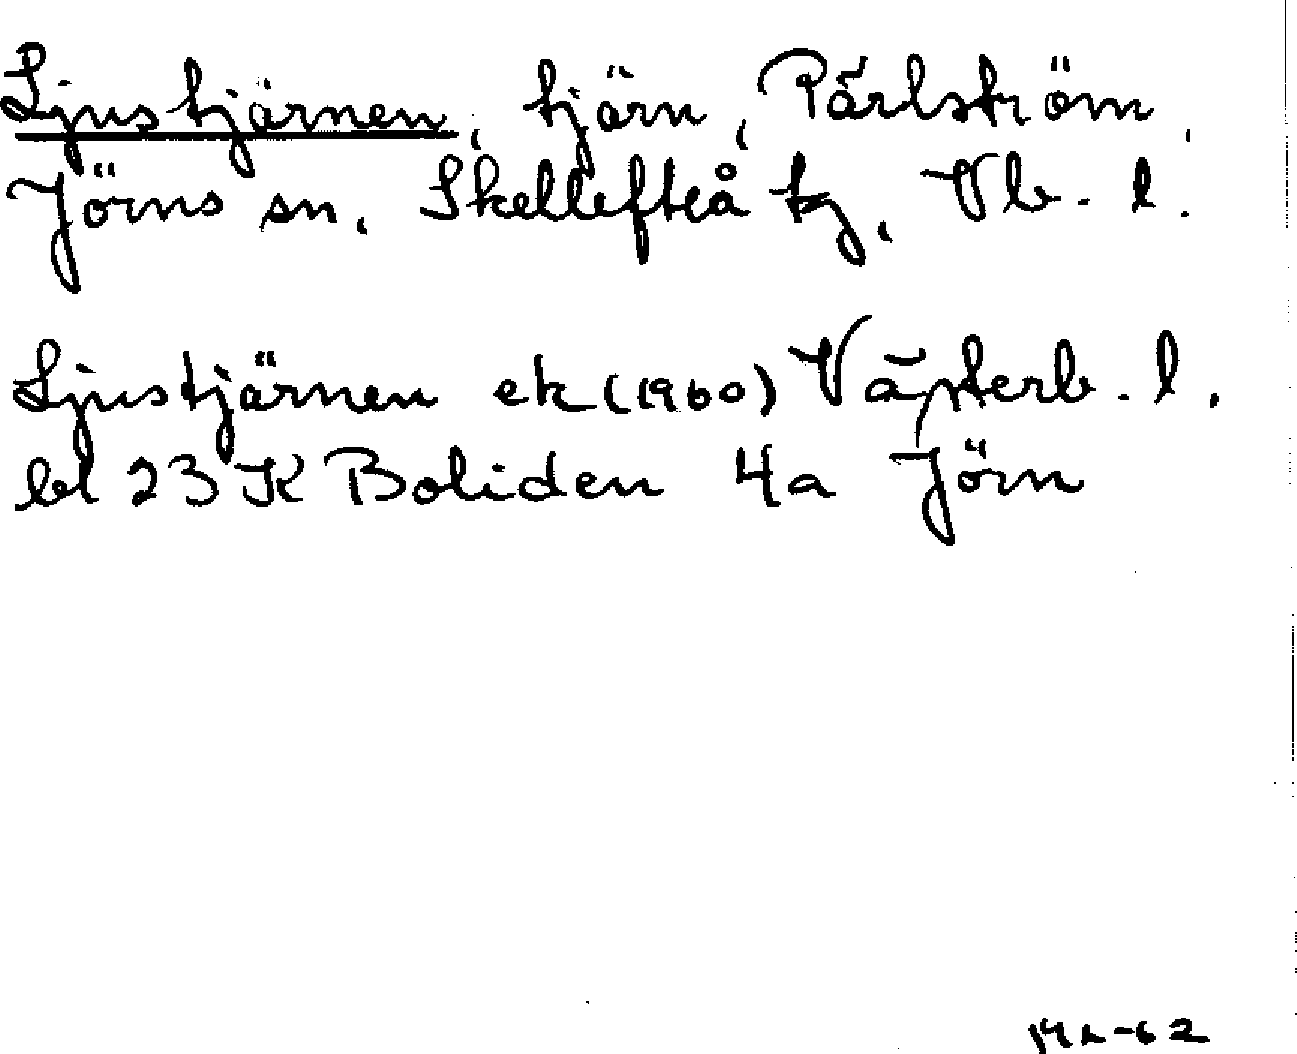 Ljustjärnen, tjärn, Pärlström,
Jörns sn, Skellefteå tg, Vb. l.
Ljustjärnen ek (1960) Västerb. l.
bl 23 K Boliden 4a Jörn